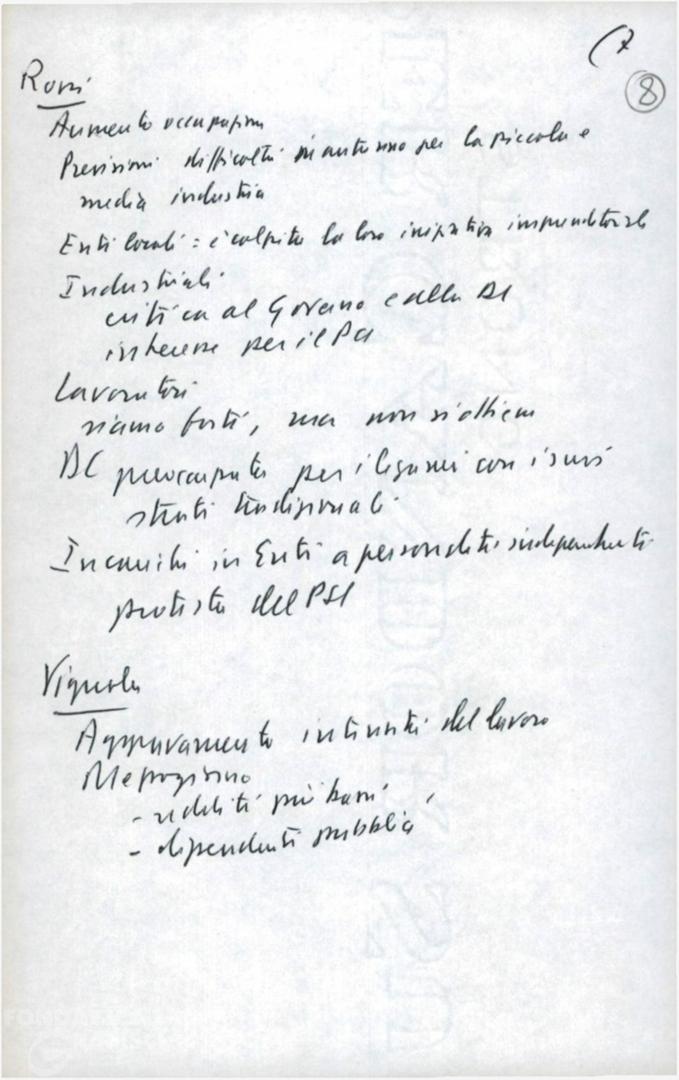 (7
8
Roni
Aumento occupazione
Previsioni difficoltà in autunno per la piccola e
media industria
Enti locali: è colpita la loro iniziativa imprenditoriale
Industriali
critica al Governo e alla DC
interesse per il PCI
Lavoratori
siamo forti, ma non
DC preoccupata per i legami con i suoi
strati tradizionali
Incarichi in Enti a personalità indipendenti
protesta del PSI
Vignola
Aggravamento intensità del lavoro
Mezzogiorno
- redditi più bassi
- dipendenti pubblici
FONDAZIONE